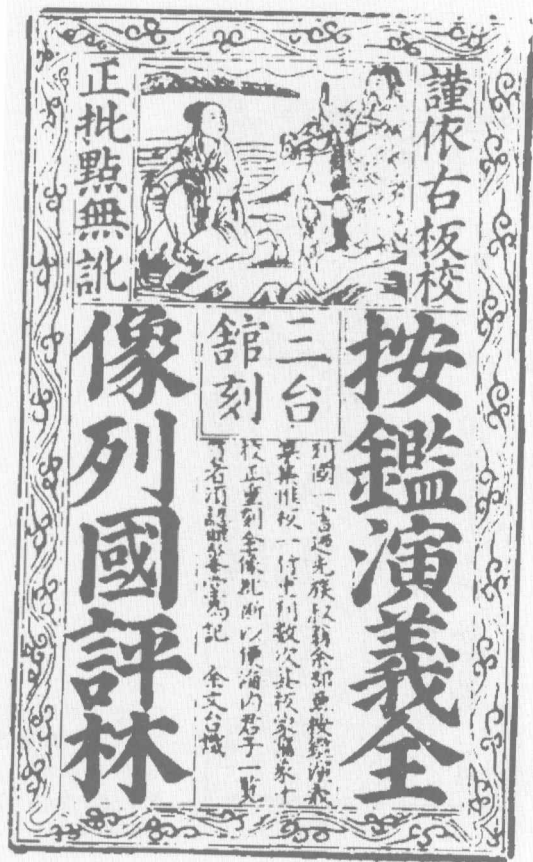 謹依古板校
正批點無訛
按鑑演義全
像列國評林
三台
館刻
列國一書迺先族叔翁余邵魚按鑑演義
纂集惟板一付重刊數次其板蒙舊象斗
校正重刻全像批斷以便海內君子一覽
買者須認雙峯堂為記 余文台識